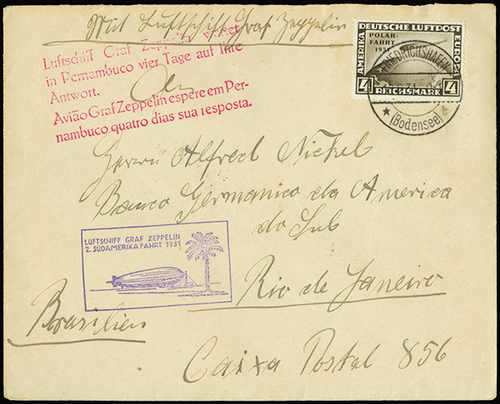 Mit Luftschiff Graf Zeppelin
DEUTSCHE LUFTPOST
AMERIKA
EUROPA
POLAR-
FAHRT
1931
4 REICHSMARK 4
FRIEDRICHSHAFEN
(Bodensee)
Luftschiff Graf Zeppelin wartet
in Pernambuco vier Tage auf Ihre
Antwort.
Avião Graf Zeppelin espere em Per-
nambuco quatro dias sua resposta.
An
Herrn Alfred Nickel
Banco Germanico da America
do Sul
LUFTSCHIFF GRAF ZEPPELIN
2. SÜDAMERIKAFAHRT 1931
Rio de Janeiro
Brasilien
Caixa Postal 856